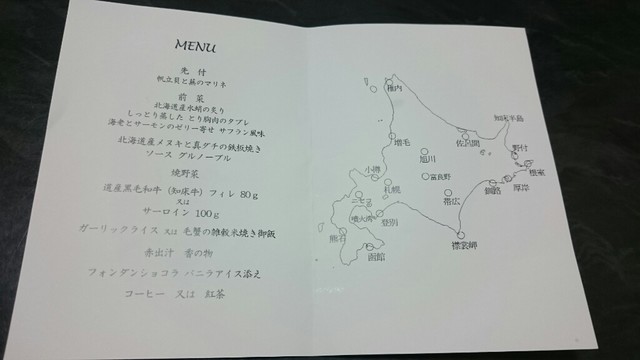 MENU
先 付
帆立貝と蕪のマリネ
前 菜
北海道産水蛸の炙り
しっとり蒸した とり胸肉のタブレ
海老とサーモンのゼリー寄せ サフラン風味
北海道産メヌキと真ダチの鉄板焼き
ソース グルノーブル
焼野菜
道産黒毛和牛（知床牛）フィレ 80g
又は
サーロイン 100g
ガーリックライス 又は 毛蟹の雑穀米焼き御飯
赤出汁 香の物
フォンダンショコラ バニラアイス添え
コーヒー 又は 紅茶
稚内
知床半島
増毛
佐呂間
旭川
野付
小樽
根室
富良野
札幌
厚岸
釧路
ニセコ
帯広
噴火湾
登別
熊石
襟裳岬
函館